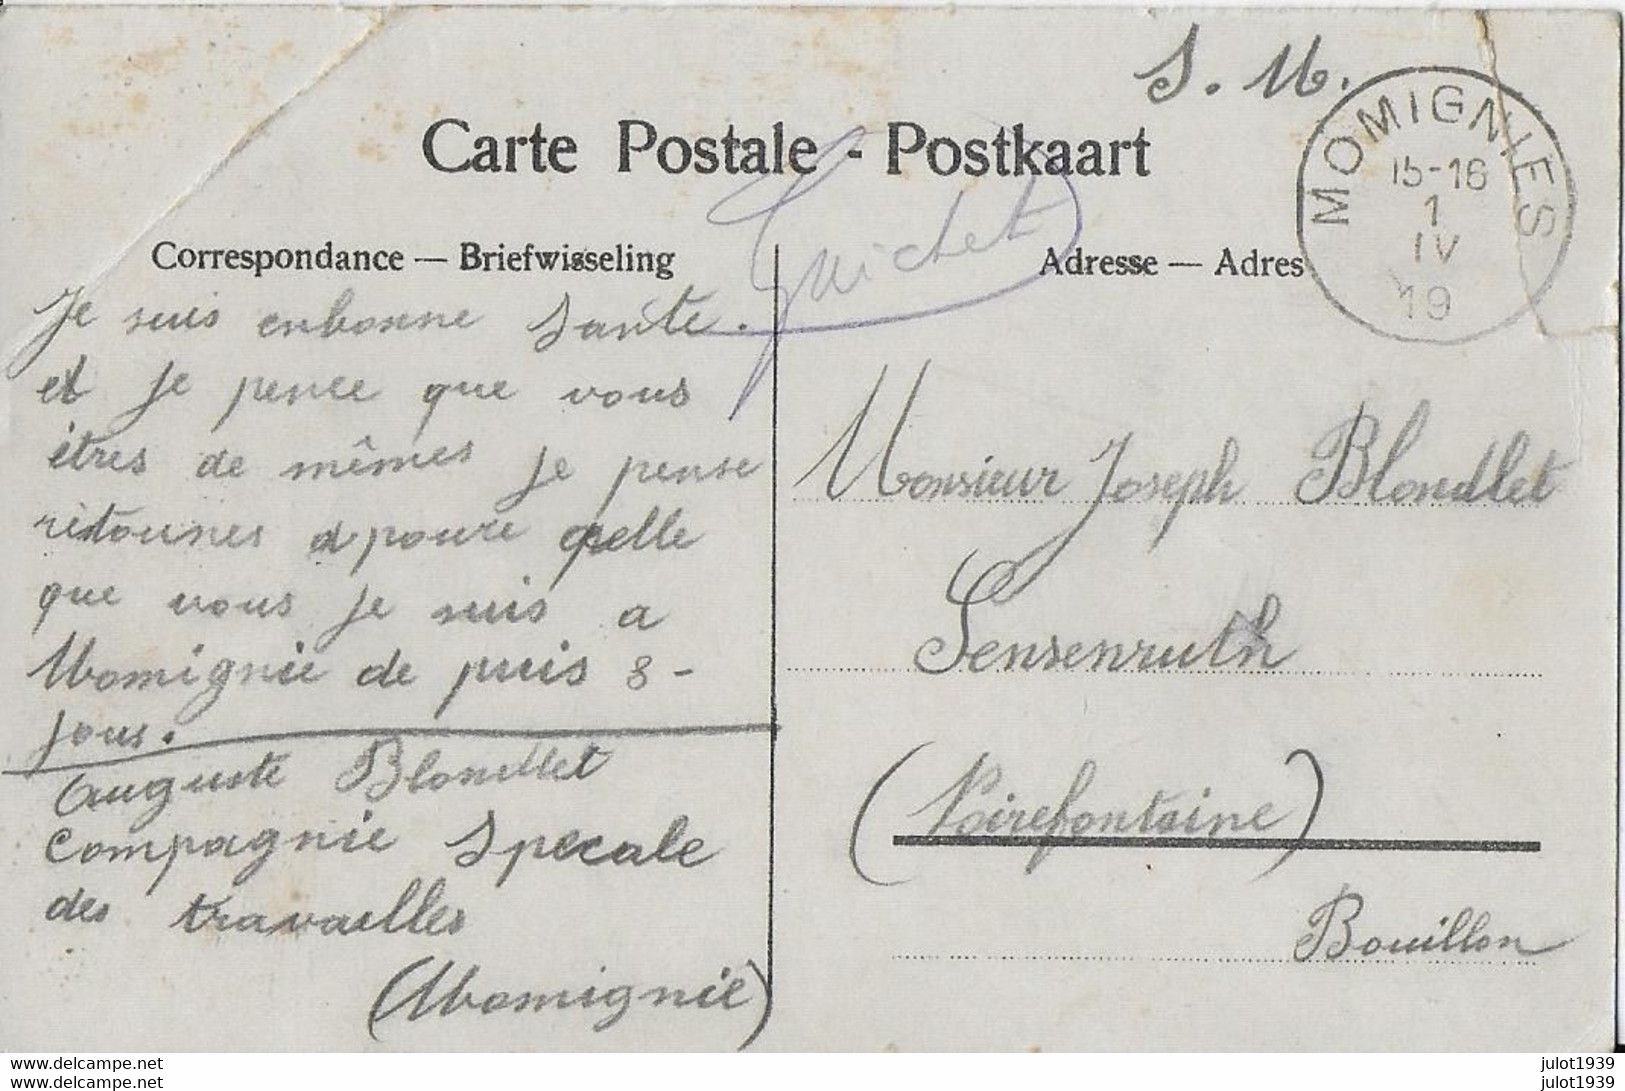 S. M.
MOMIGNIES
15-16
1
IV
19
Carte Postale - Postkaart
Guichet
Correspondance — Briefwisseling
Adresse — Adres
Je suis enbonne Sante.
et je pence que vous
êtres de mêmes je pense
ristounes a poure qrelle
que vous je suis a
Momignie de puis 8-
jous.
Auguste Blondlet
Compagnie Specale
des travailles
(Momignie)
Monsieur Joseph Blondlet
Sensenruth
(Noirefontaine)
Bouillon
delcampe.net
delcampe.net
julot1939
julot1939